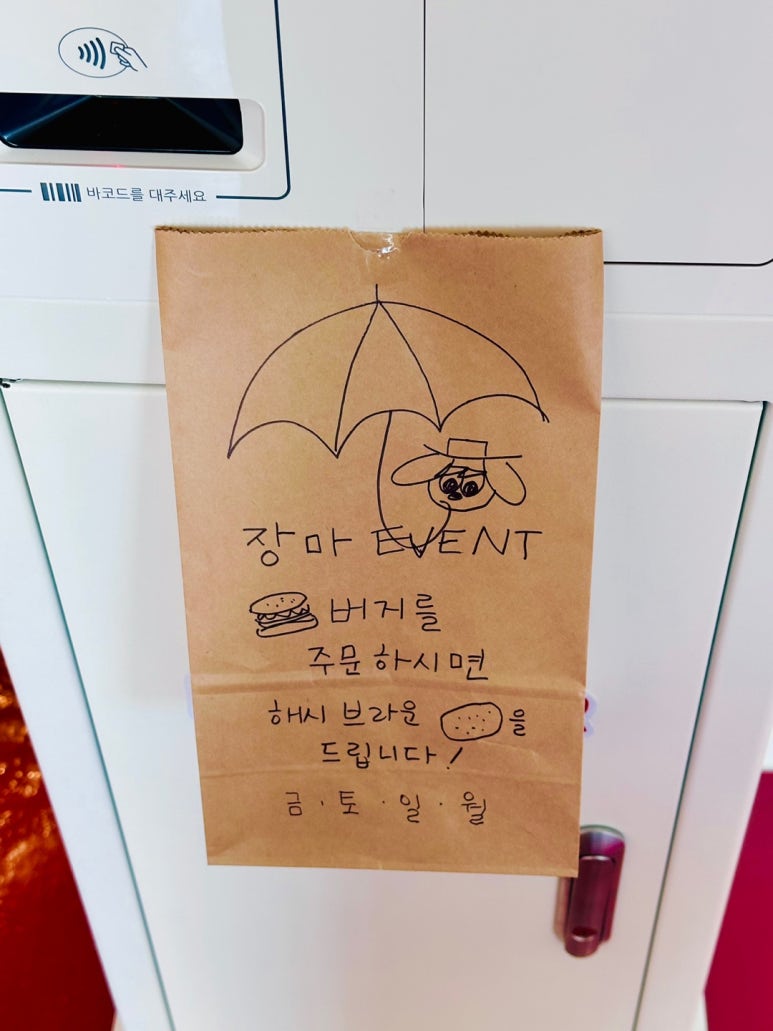 바코드를 대주세요
장마 EVENT
버거를
주문하시면
해시 브라운 을
드립니다!
금·토·일·월